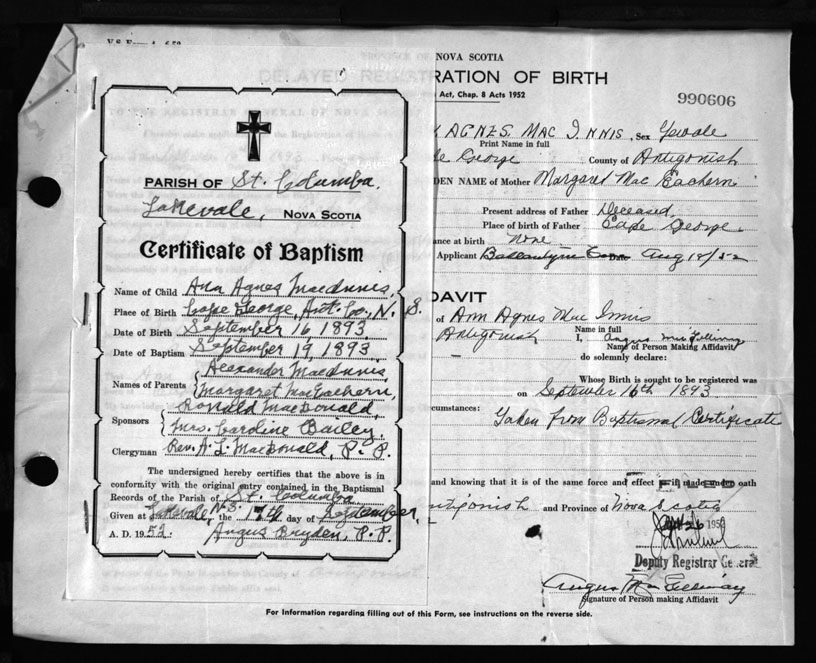 PARISH OF St. Columba,
Lakevale, NOVA SCOTIA
Certificate of Baptism
Name of Child Ann Agnes MacInnis,
Place of Birth Cape George, Ant. Co., N. S.
Date of Birth September 16 1893
Date of Baptism September 19, 1893
Names of Parents { Alexander MacInnis,
Margaret MacEachern,
Sponsors { Ronald MacDonald,
Mrs. Caroline Bailey,
Clergyman Rev. A. L. MacDonald, P. P.
The undersigned hereby certifies that the above is in
conformity with the original entry contained in the Baptismal
Records of the Parish of St. Columba
Given at Lakevale, N.S. the 17th day of September,
A. D. 1952. Angus Bryden, P. P.
NOVA SCOTIA
DELAYED REGISTRATION OF BIRTH
Act, Chap. 8 Acts 1952
990606
AGNES. MAC INNIS, Sex Female
Print Name in full
George County of Antigonish
DEN NAME of Mother Margaret Mac Eachern
Present address of Father Deceased
Place of birth of Father Cape George
ance at birth None
Applicant Aug 18/52
DAVIT
of Ann Agnes Mac Innis
Name in full
Antigonish I, Angus
Name of Person Making Affidavit
do solemnly declare:
Whose Birth is sought to be registered was
on September 16th 1893
cumstances: Taken from Baptismal Certificate
and knowing that it is of the same force and effect if made under oath
ntigonish and Province of Nova Scotia
26 195
Deputy Registrar General
Angus
Signature of Person making Affidavit
For Information regarding filling out of this Form, see instructions on the reverse side.